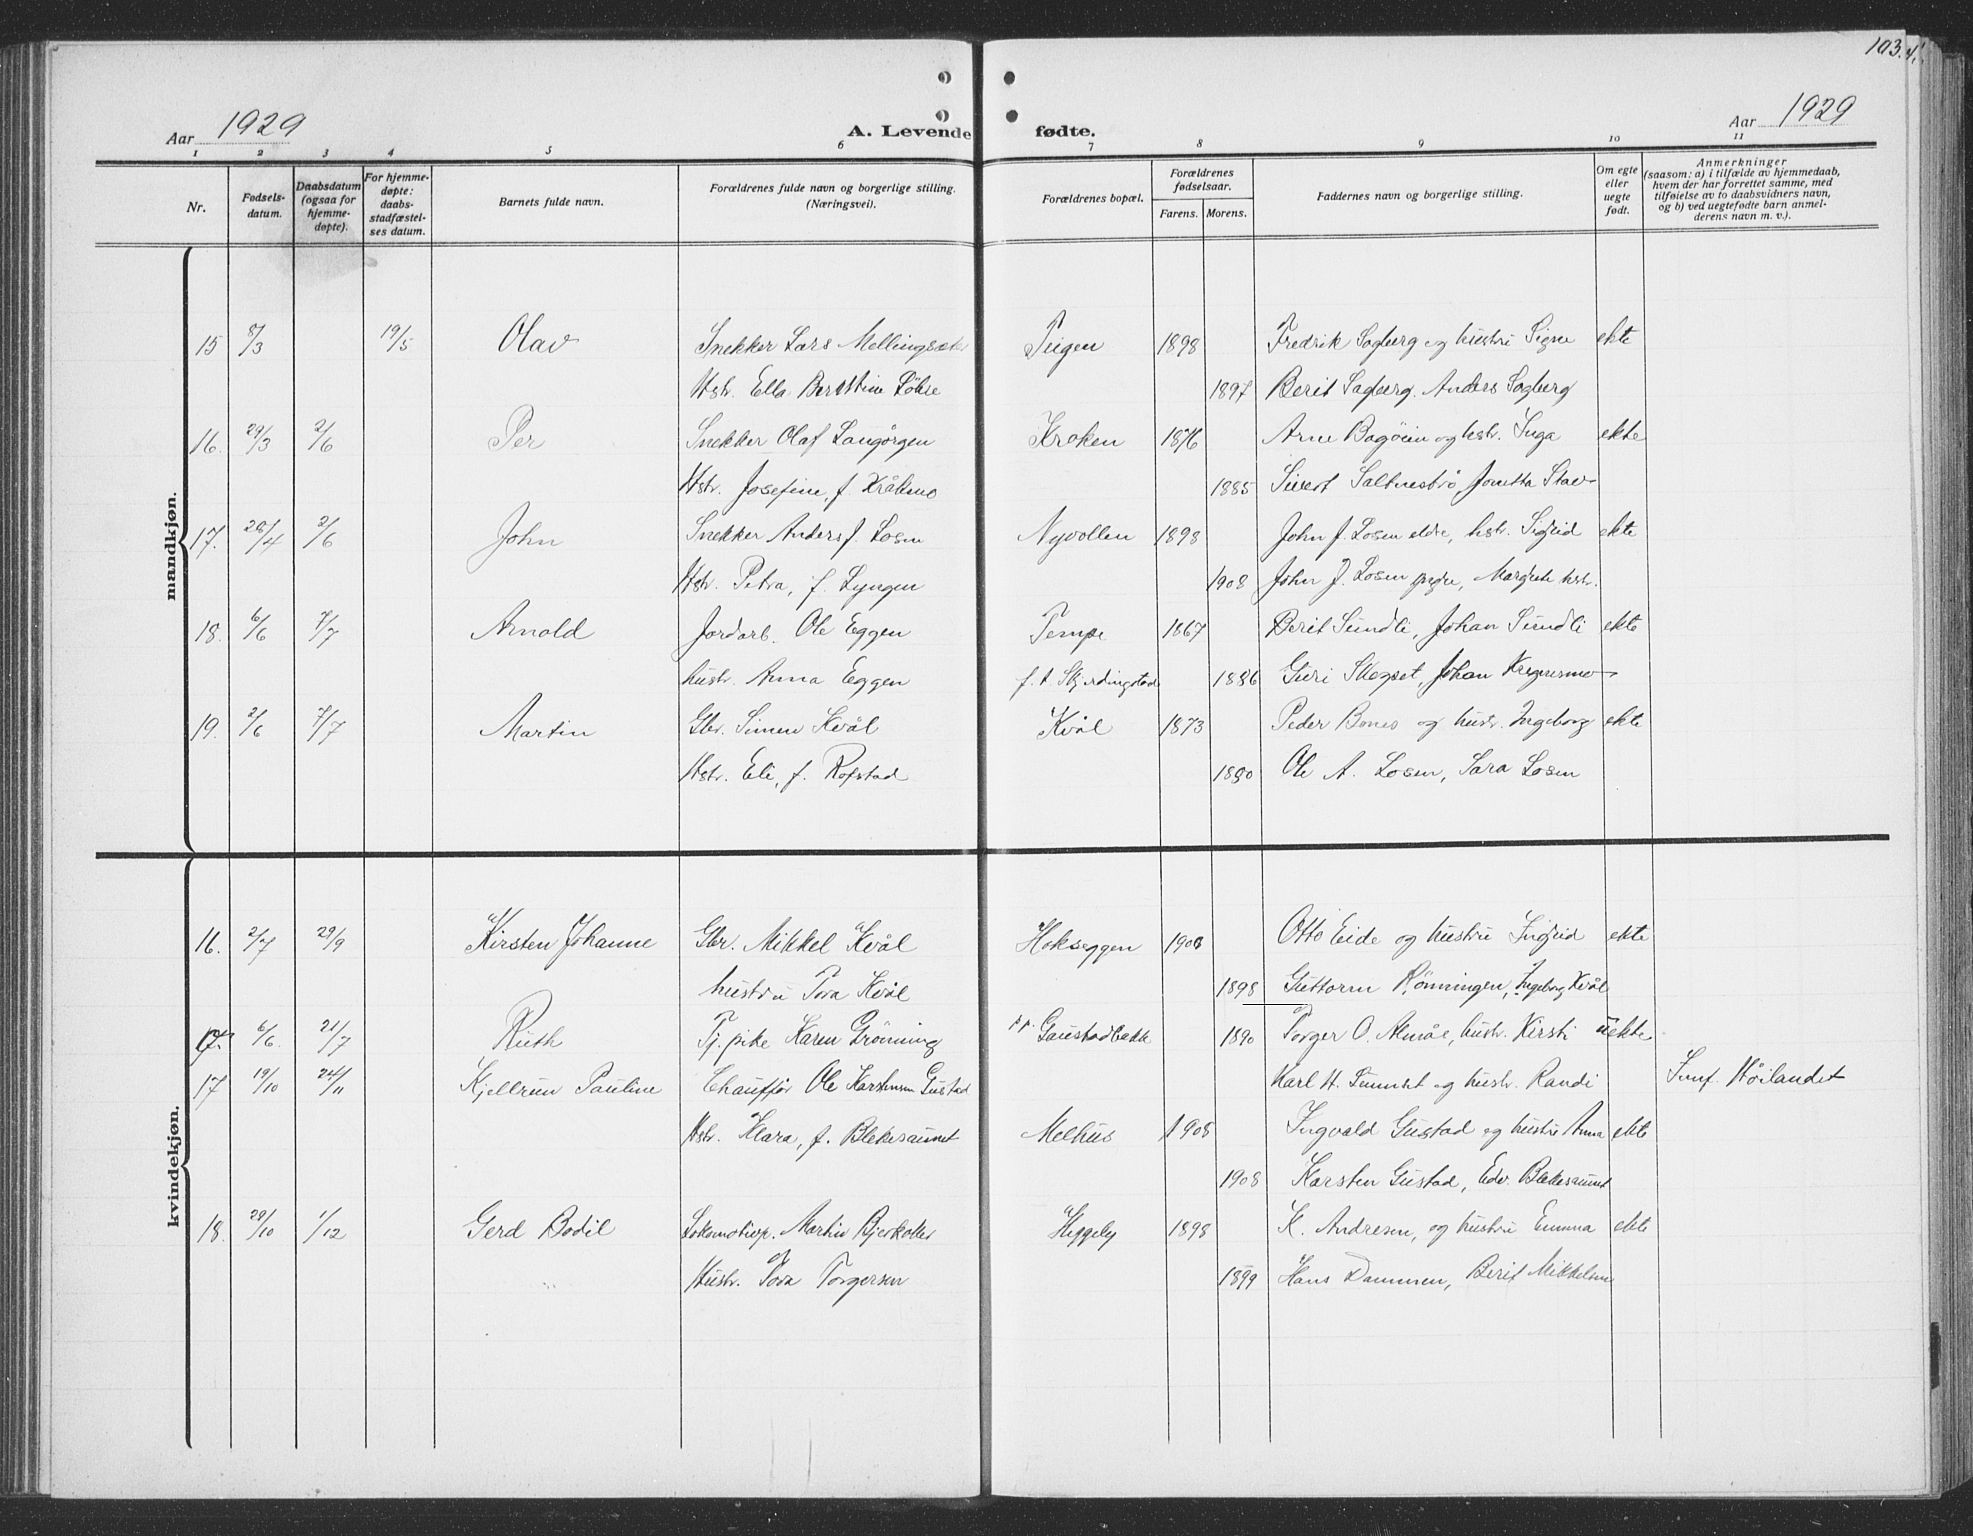 103.
Aar 1929 A. Levende fødte. Aar 1929
1 2 3 4 5 6 7 8 9 10 11
Nr. Fødsels-datum. Daabsdatum (ogsaa for hjemme-døpte). For hjemme-døpte: daabs-stadfæstel-ses datum. Barnets fulde navn. Forældrenes fulde navn og borgerlige stilling. (Næringsvei). Forældrenes bopæl. Forældrenes fødselsaar. Farens. Morens. Faddernes navn og borgerlige stilling. Om egte eller uegte født. Anmerkninger (saasom: a) i tilfælde av hjemmedaab, hvem der har forrettet samme, med tilføielse av to daabsvidners navn, og b) ved uegtefødte barn anmel-derens navn m. v.).
mandkjøn.
15 8/3 19/5 Olav Snekker Lars Mellingsæter Teigen 1898 Fredrik Sagberg og hustru Signe ekte
Hstr. Ella Berntine Løhre 1897 Berit Sagberg. Anders Sagberg
16. 29/3 2/6 Per Snekker Olaf Langørgen Kroken 1876 Arne Bagøien og hstr. Inga ekte
Hstr. Josefine, f. Kråkmo 1885 Sivert Saltnesbrö Jonetta Stav
17. 28/4 2/6 John Snekker Anders J. Losen Nyvollen 1898 John J. Losen eldre, hstr. Sigrid ekte
Hstr. Petra, f. Lyngen 1908 John J. Losen yngre, Margrete hstr.
18. 6/6 7/7 Arnold Jordarb. Ole Eggen Tempe 1867 Berit Sundli, Johan Sundli ekte
hustr. Anna Eggen f. t. Skjerdingstad 1886 Guri Skogset, Johan
19. 2/6 7/7 Martin Gbr. Simen Kvål Kvål 1873 Peder Bones og hustr. Ingeborg ekte
Hstr. Eli, f. Rofstad 1890 Ole A. Losen, Sara Losen
kvindekjøn.
16. 2/7 29/9 Kirsten Johanne Gbr. Mikkel Kvål Hokseggen 1900 Otto Eide og hustru Ingrid ekte
hustru Tora Kvål 1898 Guttorm Rønningen, Ingeborg Kvål
17. 6/6 21/7 Ruth Tj. pike Karen Grönning Gaustadbakk 1890 Torger O. Almås, hustr. Kirsti uekte
17 19/10 24/11 Kjellrun Pauline Chauffør Ole Karstensen Gustad Karl H. Tunnset og hustr. Randi Høilandet
Hstr. Klara, f. Blekesaunet Melhus 1908 Ingvald Gustad og hustru Anna ekte
1908 Karsten Gustad, Edv. Blekesaunet
18. 29/10 1/12 Gerd Bodil Lokomotivp. Martin Bjerkolter Hyggely 1898 K. Andresen, og hustru Emma ekte
Hustr. Tora Torgersen 1899 Hans Dammen, Berit Mikkelsen